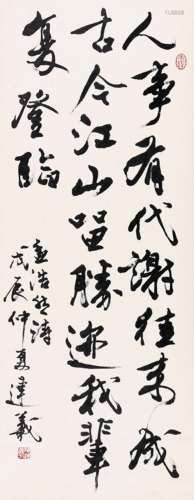 人事有代谢往来成
古今江山留勝迹我辈
复登临
孟浩然诗
戊辰仲夏達義